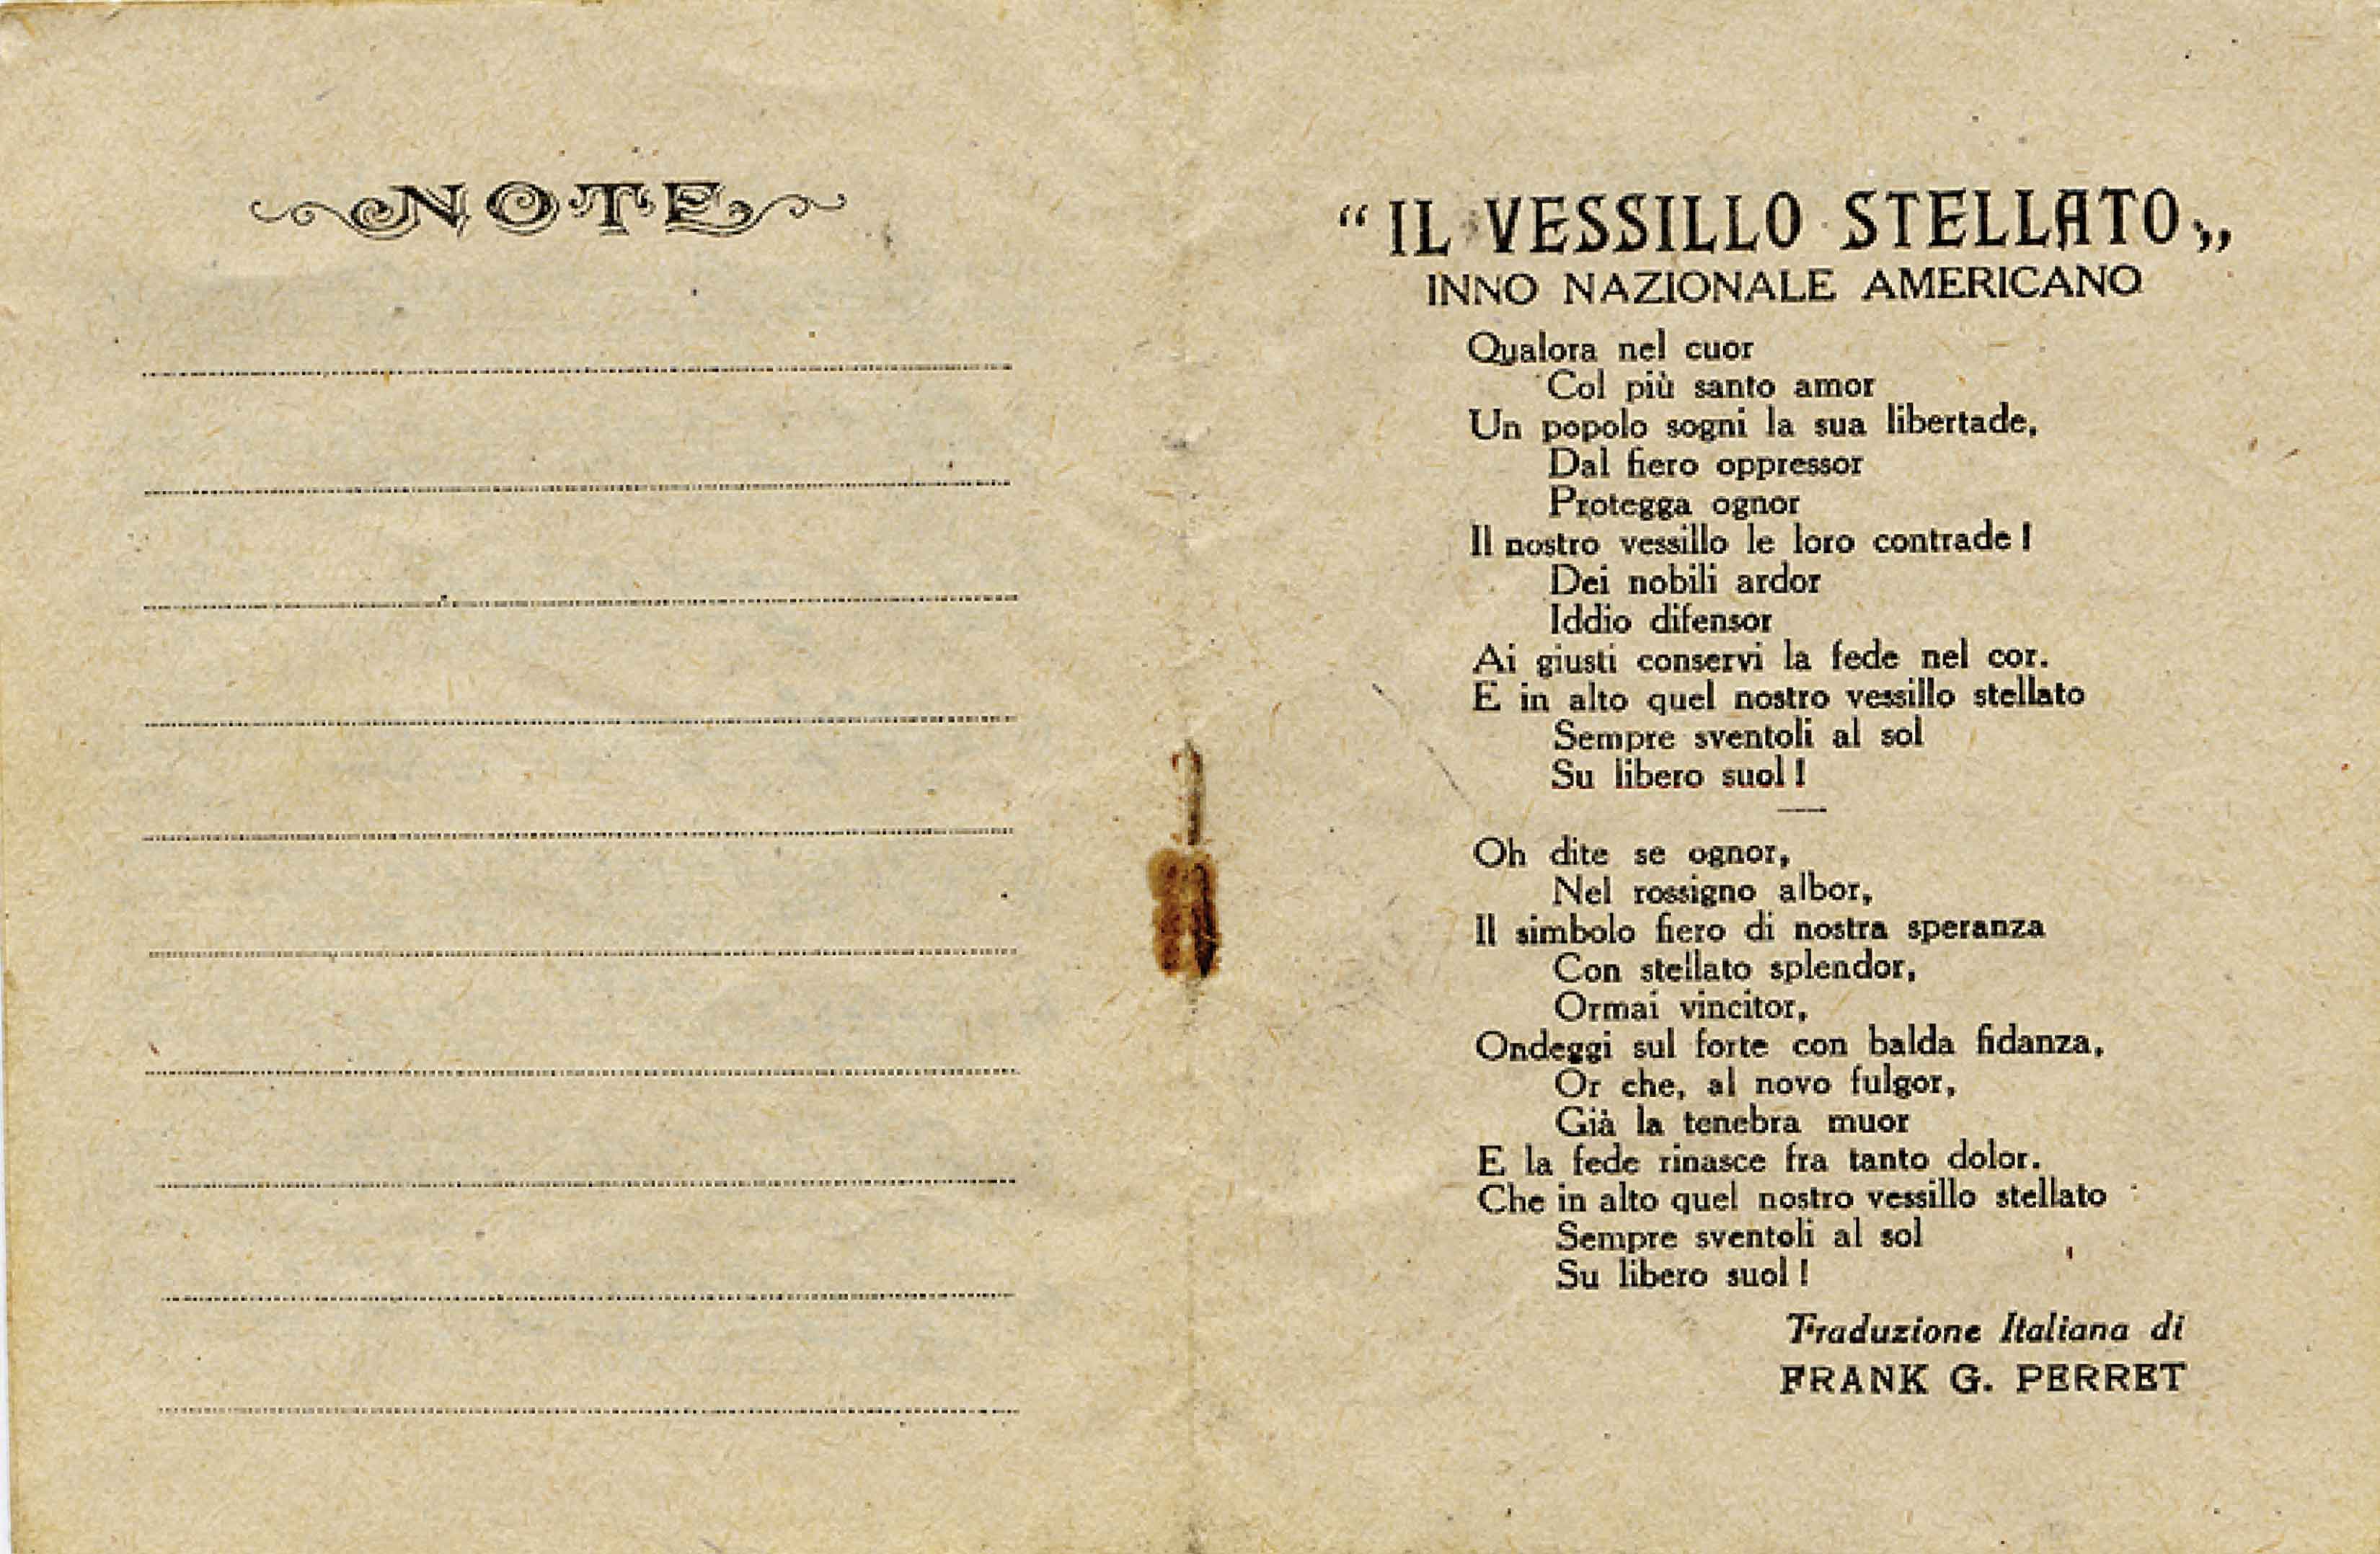 NOTE
“ IL VESSILLO STELLATO „
INNO NAZIONALE AMERICANO
Qualora nel cuor
Col più santo amor
Un popolo sogni la sua libertade,
Dal fiero oppressor
Protegga ognor
Il nostro vessillo le loro contrade !
Dei nobili ardor
Iddio difensor
Ai giusti conservi la fede nel cor.
E in alto quel nostro vessillo stellato
Sempre sventoli al sol
Su libero suol !
Oh dite se ognor,
Nel rossigno albor,
Il simbolo fiero di nostra speranza
Con stellato splendor,
Ormai vincitor,
Ondeggi sul forte con balda fidanza,
Or che, al novo fulgor,
Già la tenebra muor
E la fede rinasce fra tanto dolor.
Che in alto quel nostro vessillo stellato
Sempre sventoli al sol
Su libero suol !
Traduzione Italiana di
FRANK G. PERRET